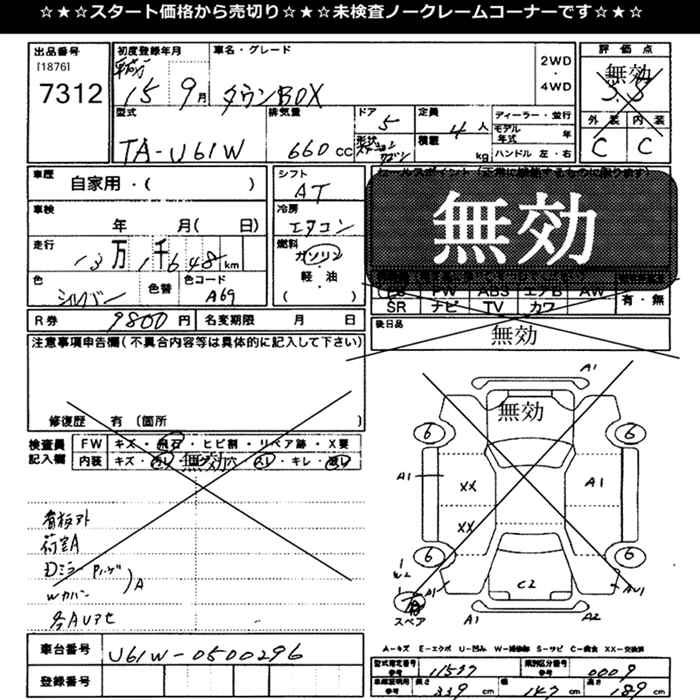 ☆★☆★スタート価格から売切り☆★☆★未検査ノークレームコーナーです☆★☆
出品番号 初度登録年月 車名・グレード 評価点
[1876]
7312 15 9月 タウンBOX 2WD・4WD 無効 3.5
型式 排気量 ドア 定員 ディーラー・並行 外装 内装
TA-U61W 660cc 5 4人 モデル年式 年 C C
形状 積載 kg ハンドル 左・右
車歴 自家用・( ) シフト AT セールスポイント
車検 年 月( 日) 冷房 エアコン 無効
走行 13万1千648km 燃料 ガソリン
軽・油
( )
色 シルバー 色替 色コード A69
PS PW ABS エアB AW 有・無
SR ナビ TV カワ
R券 9800円 名変期限 月 日 後日品 無効
注意事項申告欄(不具合内容等は具体的に記入して下さい)
修復歴 有 (箇所
無効
検査員記入欄 FW キズ・飛石・ヒビ割・リペア跡・X要
内装 キズ・ 無効 穴・スレ・キレ・
A1
6 6
A1 XX A1
XX
6 6
C2
A1 AU1
スペア A1 A2
看板外
荷室A
Dミラー
Wカバー
A
各AUアセ
A-キズ E-エクボ U-凹み W-補修跡 S-サビ C-腐食 XX-交換済
車台番号 U61W-0500296
登録番号
型式指定番号 参考 11527 類別区分番号 参考 0009
長さ 339cm 幅 147cm 高さ 189cm